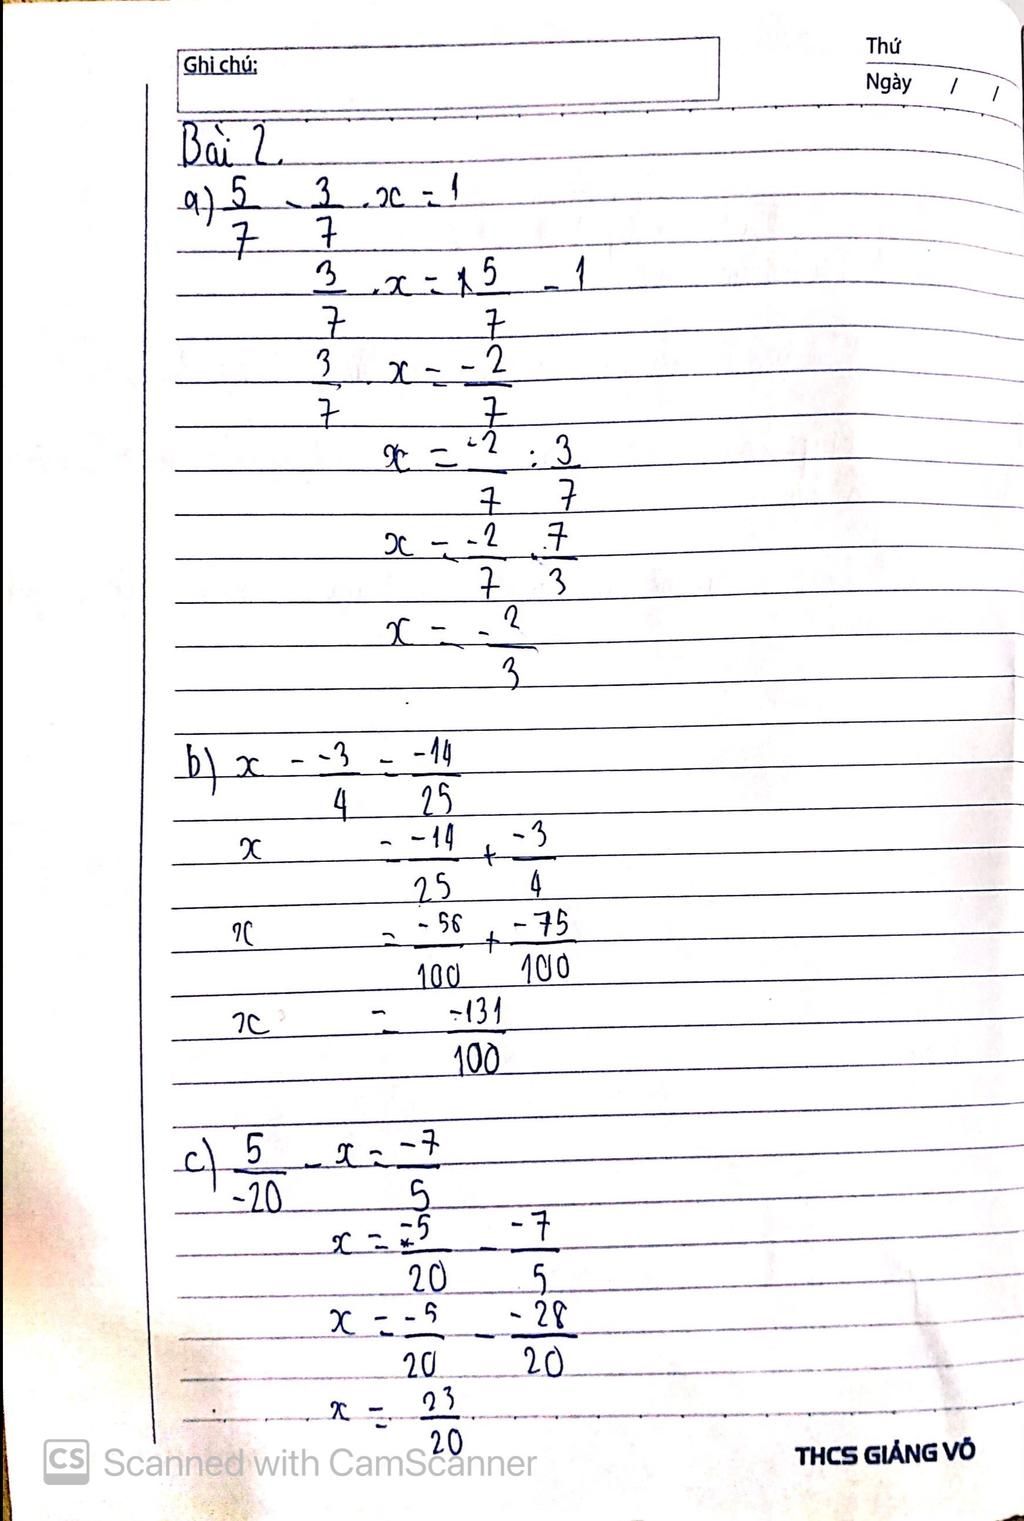 Ghi chú:
Thứ
Ngày / /
Bài 2.
a) 5/7 - 3/7 . x = 1
3/7 . x = 5/7 - 1
3/7 . x = -2/7
x = -2/7 : 3/7
x = -2/7 . 7/3
x = -2/3
b) x - -3/4 = -14/25
x = -14/25 + -3/4
x = -56/100 + -75/100
x = -131/100
c) 5/-20 - x = -7/5
x = -5/20 - -7/5
x = -5/20 - -28/20
x = 23/20
THCS GIẢNG VÕ
CS Scanned with CamScanner